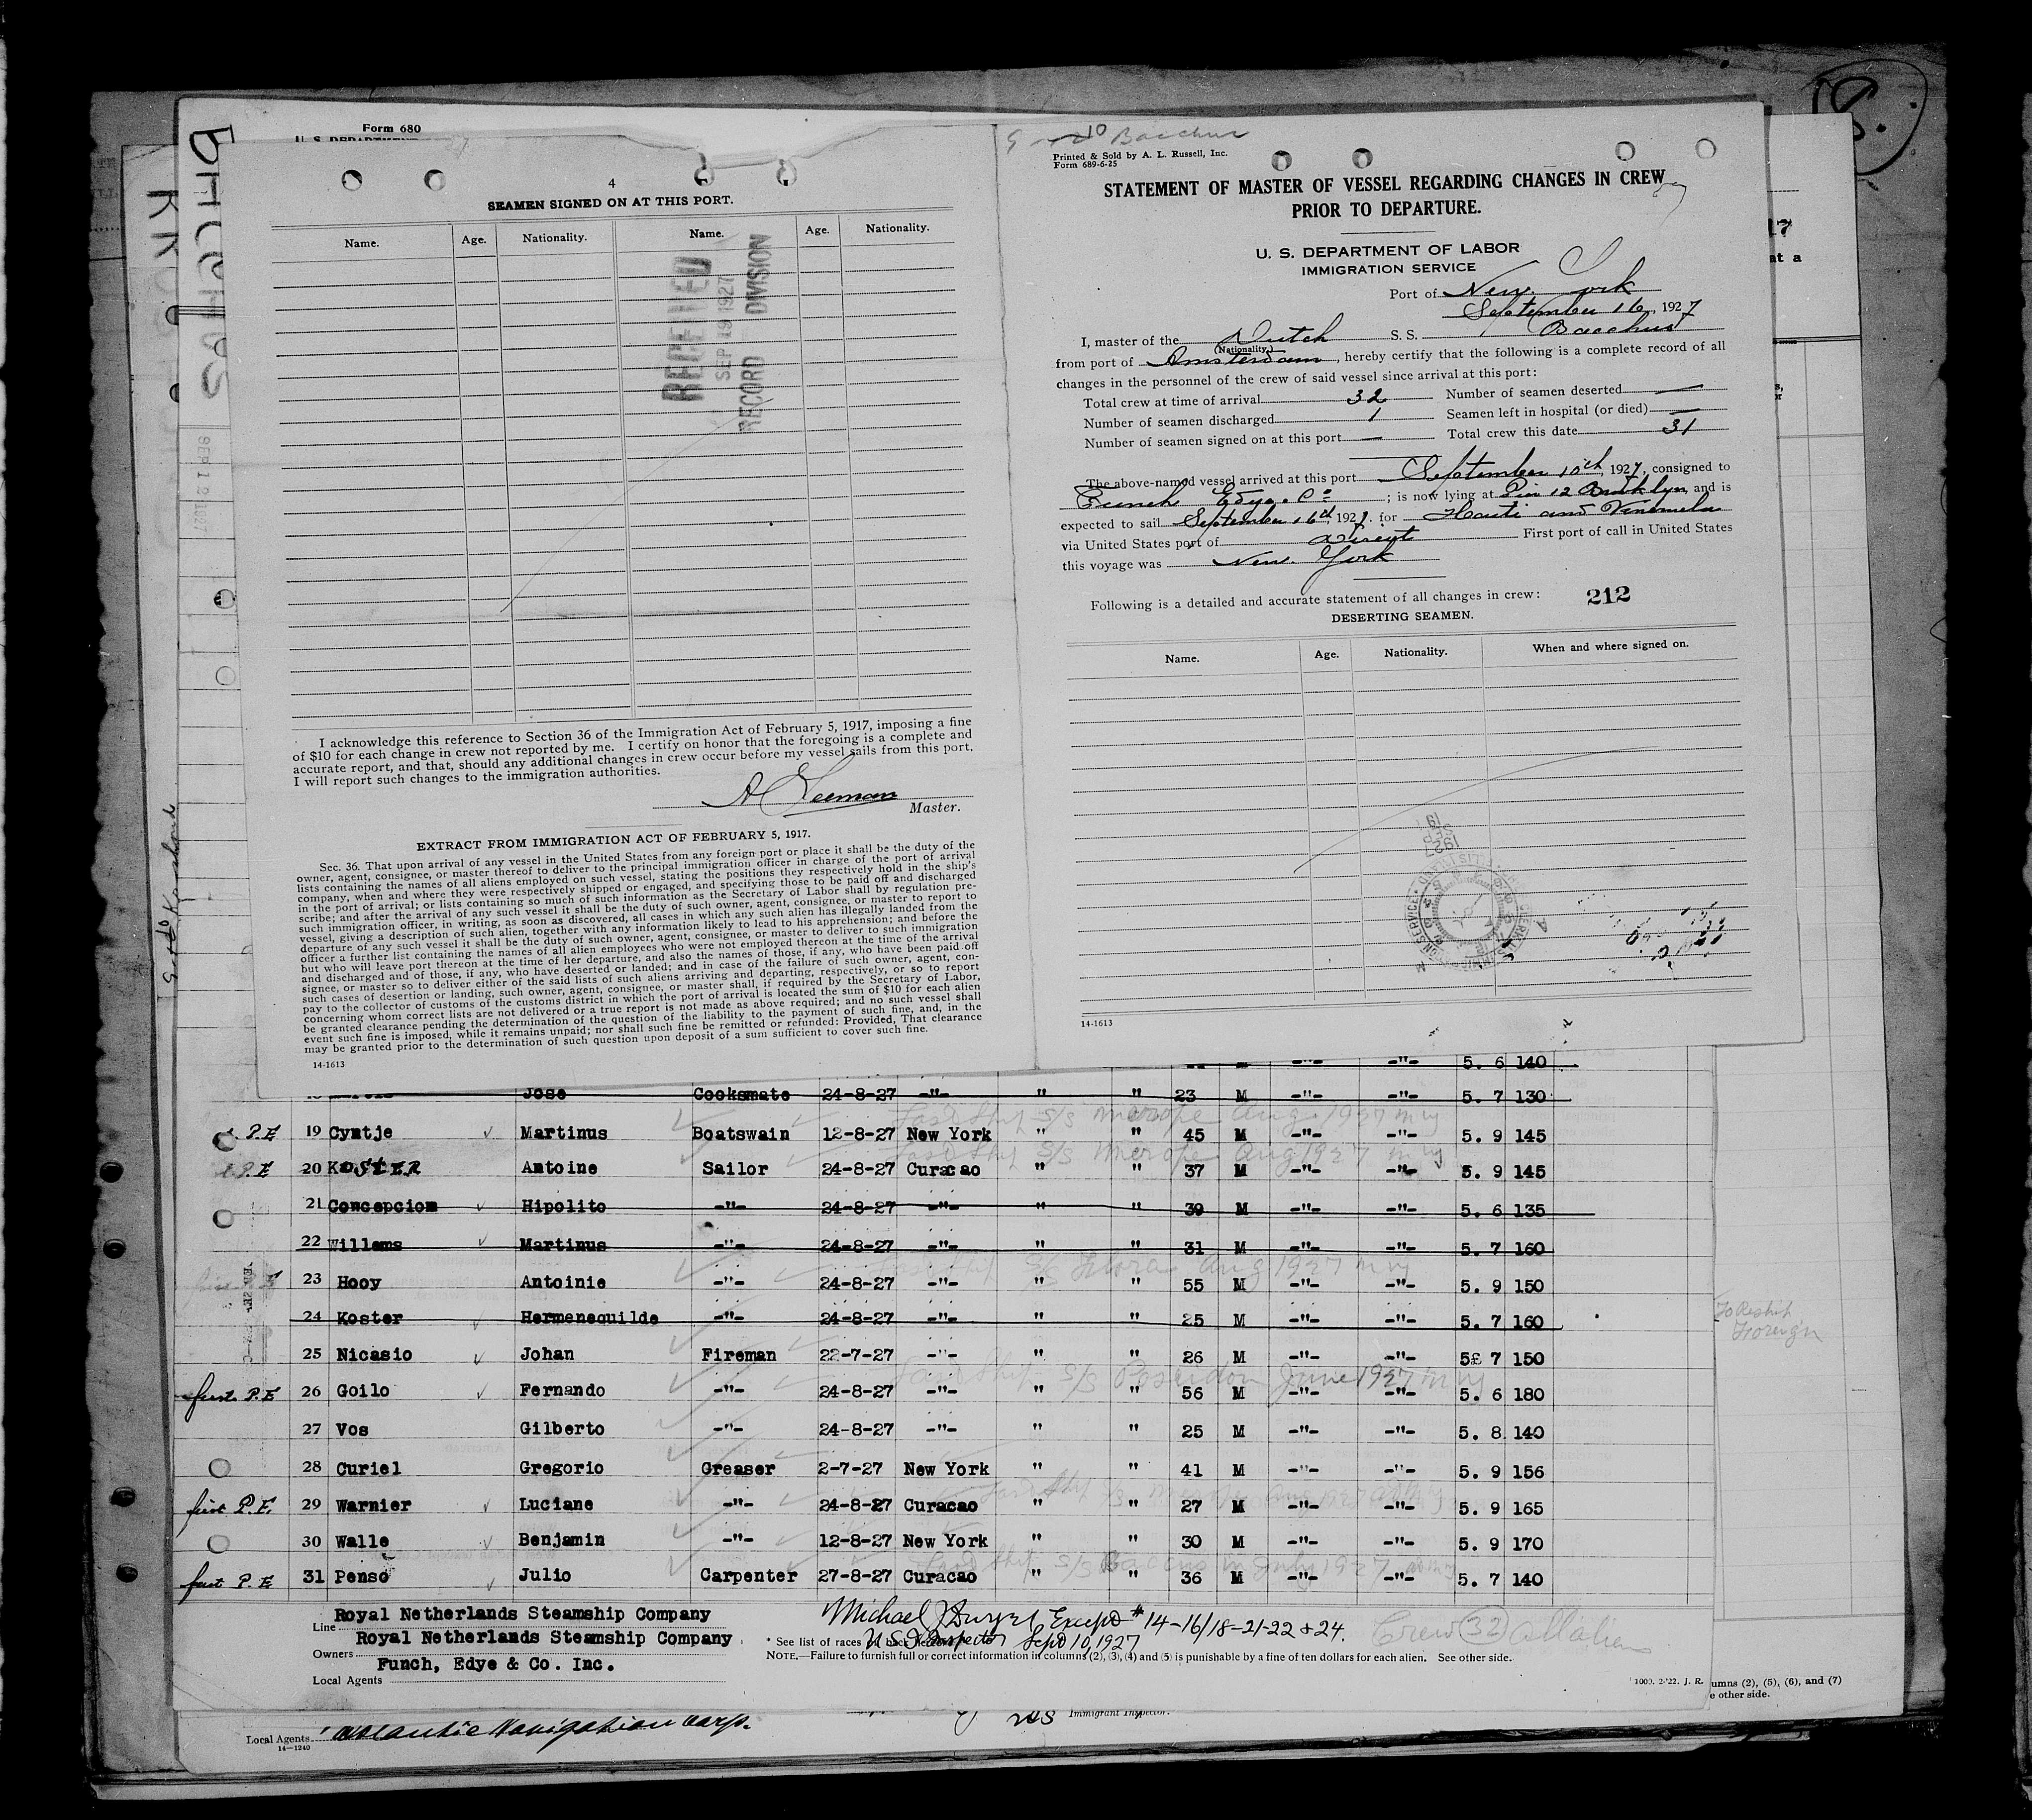 Form 680
4
SEAMEN SIGNED ON AT THIS PORT.
Name. Age. Nationality. Name. Age. Nationality.
RECEIVED
SEP 19 1927
RECORD DIVISION
I acknowledge this reference to Section 36 of the Immigration Act of February 5, 1917, imposing a fine
of $10 for each change in crew not reported by me. I certify on honor that the foregoing is a complete and
accurate report, and that, should any additional changes in crew occur before my vessel sails from this port,
I will report such changes to the immigration authorities.
Master.
EXTRACT FROM IMMIGRATION ACT OF FEBRUARY 5, 1917.
Sec. 36. That upon arrival of any vessel in the United States from any foreign port or place it shall be the duty of the
owner, agent, consignee, or master thereof to deliver to the principal immigration officer in charge of the port of arrival
lists containing the names of all aliens employed on such vessel, stating the positions they respectively hold in the ship's
company, when and where they were respectively shipped or engaged, and specifying those to be paid off and discharged
in the port of arrival; or lists containing so much of such information as the Secretary of Labor shall by regulation pre-
scribe; and after the arrival of any such vessel it shall be the duty of such owner, agent, consignee, or master to report to
such immigration officer, in writing, as soon as discovered, all cases in which any such alien has illegally landed from the
vessel, giving a description of such alien, together with any information likely to lead to his apprehension; and before the
departure of any such vessel it shall be the duty of such owner, agent, consignee, or master to deliver to such immigration
officer a further list containing the names of all alien employees who were not employed thereon at the time of the arrival
but who will leave port thereon at the time of her departure, and also the names of those, if any, who have been paid off
and discharged and of those, if any, who have deserted or landed; and in case of the failure of such owner, agent, con-
signee, or master so to deliver either of the said lists of such aliens arriving and departing, respectively, or so to report
such cases of desertion or landing, such owner, agent, consignee, or master shall, if required by the Secretary of Labor,
pay to the collector of customs of the customs district in which the port of arrival is located the sum of $10 for each alien
concerning whom correct lists are not delivered or a true report is not made as above required; and no such vessel shall
be granted clearance pending the determination of the question of the liability to the payment of such fine, and, in the
event such fine is imposed, while it remains unpaid; nor shall such fine be remitted or refunded: Provided, That clearance
may be granted prior to the determination of such question upon deposit of a sum sufficient to cover such fine.
14-1613
10 Bacchus
Printed & Sold by A. L. Russell, Inc.
Form 689-6-25
STATEMENT OF MASTER OF VESSEL REGARDING CHANGES IN CREW
PRIOR TO DEPARTURE.
U. S. DEPARTMENT OF LABOR
IMMIGRATION SERVICE
Port of New York
September 16, 1927
I, master of the Dutch S. S. Bacchus
(Nationality)
from port of Amsterdam, hereby certify that the following is a complete record of all
changes in the personnel of the crew of said vessel since arrival at this port:
Total crew at time of arrival 32 Number of seamen deserted —
Number of seamen discharged 1 Seamen left in hospital (or died) —
Number of seamen signed on at this port — Total crew this date 31
The above-named vessel arrived at this port September 10th, 1927, consigned to
Funch Edye & Co; is now lying at Pier 12 Brooklyn and is
expected to sail September 16th, 1927, for Haiti and Venezuela
via United States port of Direct First port of call in United States
this voyage was New York
Following is a detailed and accurate statement of all changes in crew: 212
DESERTING SEAMEN.
Name. Age. Nationality. When and where signed on.
14-1613
-"- -"- 5. 6 140
Jose Cooksmate 24-8-27 -"- " " 23 M -"- -"- 5. 7 130
P.E 19 Cyntje Martinus Boatswain 12-8-27 New York " " 45 M -"- -"- 5. 9 145
P.E 20 KOSTER Antoine Sailor 24-8-27 Curacao " " 37 M -"- -"- 5. 9 145
21 Concepcion Hipolito -"- 24-8-27 -"- " " 39 M -"- -"- 5. 6 135
22 Willems Martinus -"- 24-8-27 -"- " " 31 M -"- -"- 5. 7 160
23 Hooy Antoinie -"- 24-8-27 -"- " " 55 M -"- -"- 5. 9 150
24 Koster Hermenequilde -"- 24-8-27 -"- " " 25 M -"- -"- 5. 7 160
25 Nicasio Johan Fireman 22-7-27 -"- " " 26 M -"- -"- 5£ 7 150
first P.E 26 Goilo Fernando -"- 24-8-27 -"- " " 56 M -"- -"- 5. 6 180
27 Vos Gilberto -"- 24-8-27 -"- " " 25 M -"- -"- 5. 8 140
28 Curiel Gregorio Greaser 2-7-27 New York " " 41 M -"- -"- 5. 9 156
first P.E. 29 Warnier Luciane -"- 24-8-27 Curacao " " 27 M -"- -"- 5. 9 165
30 Walle Benjamin -"- 12-8-27 New York " " 30 M -"- -"- 5. 9 170
first P.E 31 Penso Julio Carpenter 27-8-27 Curacao " " 36 M -"- -"- 5. 7 140
To Reship
Foreign
Line Royal Netherlands Steamship Company
Owners Royal Netherlands Steamship Company
Local Agents Funch, Edye & Co. Inc.
Except #14-16/18-21-22 & 24.
Sept 10, 1927
Crew 32 all aliens
NOTE.—Failure to furnish full or correct information in columns (2), (3), (4) and (5) is punishable by a fine of ten dollars for each alien. See other side.
1000. 2-'22. J. R.
umns (2), (5), (6), and (7)
e other side.
Immigrant Inspector.
Local Agents Atlantic Navigation Corp.
14-1240